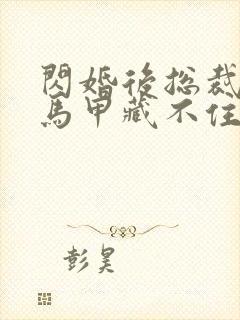 閃婚後总裁
馬甲藏不住
彭昊